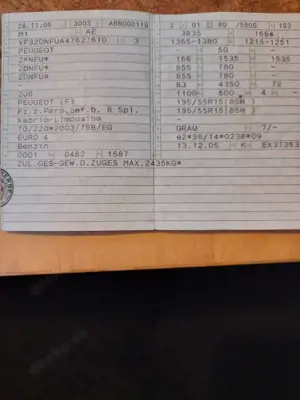 28.12.06 3003 ABB000119
M1 AE
VF32DNFUA47627610 3
PEUGEOT
2*NFU*
2DNFU*
2DNFUA
-
206
PEUGEOT (F)
Fz.z.Pers.bef.b. 8 Spl.
Kabrio-Limousine
70/220*2003/76B/EG
EURO 4
Benzin
0001 0462 1587
ZUL.GES-GEW.D.ZUGES MAX.2435KG*
2 01 80 /5800 193
3835 - 1564
1365-1380 1215-1251
- 50 -
166 1535 1535
855 780 -
855 780 -
83 4150 72
1100 600 4 -
195/55R15(85H )
195/55R15(85H )
-
GRAU 7/-
e2*98/14*0238*09
13.12.05 K